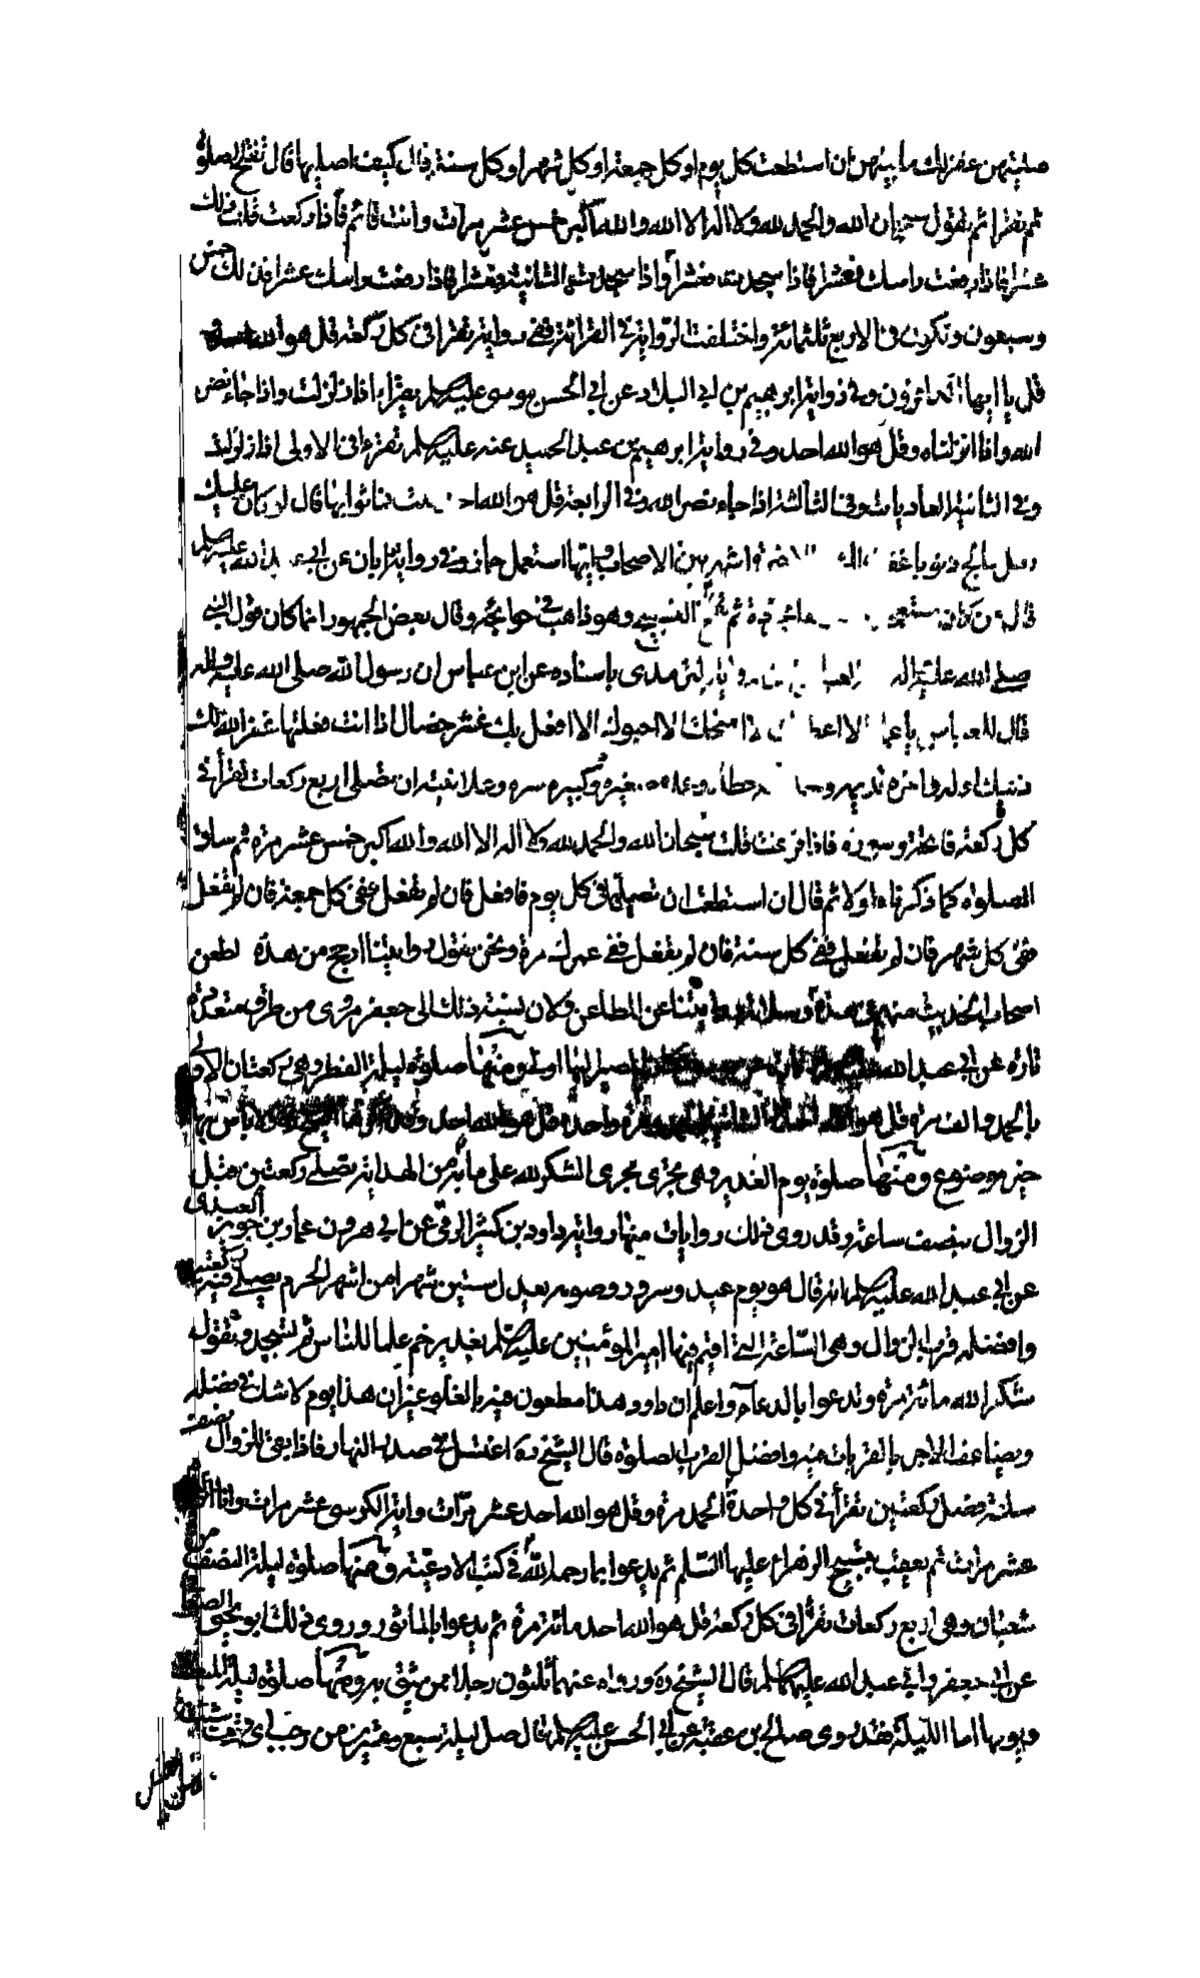 صليتهن غفر لك ما بينهن ان استطعت كل يوم او كل جمعة او كل شهر او كل سنة قال كيف اصليها قال تفتتح الصلوة
ثم تقرا ثم تقول سبحان الله والحمد لله ولا اله الا الله والله اكبر خمس عشر مرات وانت قائم فاذا ركعت قلت ذلك
عشرا فاذا رفعت راسك فعشرا فاذا سجدت فعشرا واذا سجدت الثانية فعشرا فاذا رفعت راسك عشرا فذلك خمس
وسبعون وتكون في الاربع ثلثمائة واختلفت الرواية في القرائة ففي رواية تقرا في كل ركعة قل هو الله
قل يا ايها الكافرون وفي رواية ابرهيم بن ابي البلاد عن ابي الحسن موسى عليه السلم يقرا اذا زلزلت واذا جاء نصر
الله وانا انزلناه وقل هو الله احد وفي رواية ابرهيم بن عبد الحميد عنه عليه السلم تقرء في الاولى اذا زلزلت
وفي الثانية العاديات وفي الثالثة اذا جاء نصر الله وفي الرابعة قل هو الله احد قلت فما ثوابها قال لو كان عليك
رمل عالج ذنوبا غفر الله واشهر بين الاصحاب استعمل وفي رواية ابان عن ابي عبد الله عليه السلم
قال من كان مستعجلا مجردة ثم التسبيح وهو ذاهب في حوائجه وقال بعض الجمهور انما كان هو النبي
صلى الله عليه واله العباس الترمذي باسناده عن ابن عباس ان رسول الله صلى الله عليه واله
قال للعباس يا عم الا اعطيك الا امنحك الا احبوك الا افعل بك عشر خصال اذا انت فعلتها غفر الله لك
ذنبك اوله واخره قديمه وحديثه خطأه وعمده صغيره وكبيره سره وعلانيته ان تصلي اربع ركعات تقرأ في
كل ركعة فاتحة وسورة فاذا فرغت قلت سبحان الله والحمد لله ولا اله الا الله والله اكبر خمس عشر مرة ثم ساق
الصلوة كما ذكرناه اولا ثم قال ان استطعت ان تصليها في كل يوم فافعل فان لم تفعل ففي كل جمعة فان لم تفعل
ففي كل شهر فان لم تفعل ففي كل سنة فان لم تفعل ففي عمرك مرة ونحن نقول روايتنا ارجح من هذه لطعن
اصحاب الحديث منهم في هذه وسلامة روايتنا عن المطاعن ولان نسبة ذلك الى جعفر مروي من طرق متعددة
تارة عن ابي عبد الله المصير اليها اولى ومنها صلوة ليلة الفطر وهي ركعتان الاولى
بالحمد والف مرة قل هو الله احد مرة واحدة قل هو الله احد ولا باس بها
خير موضوع ومنها صلوة يوم الغدير وهي تجري مجرى الشكر لله على ما به من الهداية تصلي ركعتين قبل
الزوال بنصف ساعة وقد روى ذلك روايات منها رواية داود بن كثير الرقي عن ابي هرون عمار بن حريز العبدي
عن ابي عبد الله عليه السلم انه قال هو يوم عيد وسرور وصومه يعدل ستين شهرا من اشهر الحرم يصلي فيه ركعتين
وافضله قرب الزوال وهي الساعة التي اقيم فيها امير المؤمنين عليه السلم بغدير خم علما للناس ثم تسجد وتقول
شكرا لله مائة مرة وتدعوا بالدعاء واعلم ان داود هذا مطعون فيه بالغلو غير ان هذا يوم لا شك في فضله
ويضاعف الاجر بالقربات فيه وافضل القرب الصلوة قال الشيخ ره اغتسل في صدر النهار فاذا بقي للزوال نصف
ساعة فصل ركعتين تقرأ في كل واحدة الحمد مرة وقل هو الله احد عشر مرات واية الكرسي عشر مرات وانا انزلناه
عشر مرات ثم يعقب بتسبيح الزهراء عليها السلم ثم يدعوا بما رحمه الله في كتب الادعية ومنها صلوة ليلة النصف من
شعبان وهي اربع ركعات تقرأ في كل ركعة قل هو الله احد مائة مرة ثم يدعوا بالماثور وروى ذلك ابو يحيى الصنعاني
عن ابي جعفر وابي عبد الله عليهما السلم قال الشيخ ره ورواه عنهما ثلثون رجلا ممن يثق به ومنها صلوة ليلة المبعث
ويومها اما الليلة فقد روى صالح بن عقبة عن ابي الحسن عليه السلم قال صل ليلة سبع وعشرين من رجب اي وقت شئت